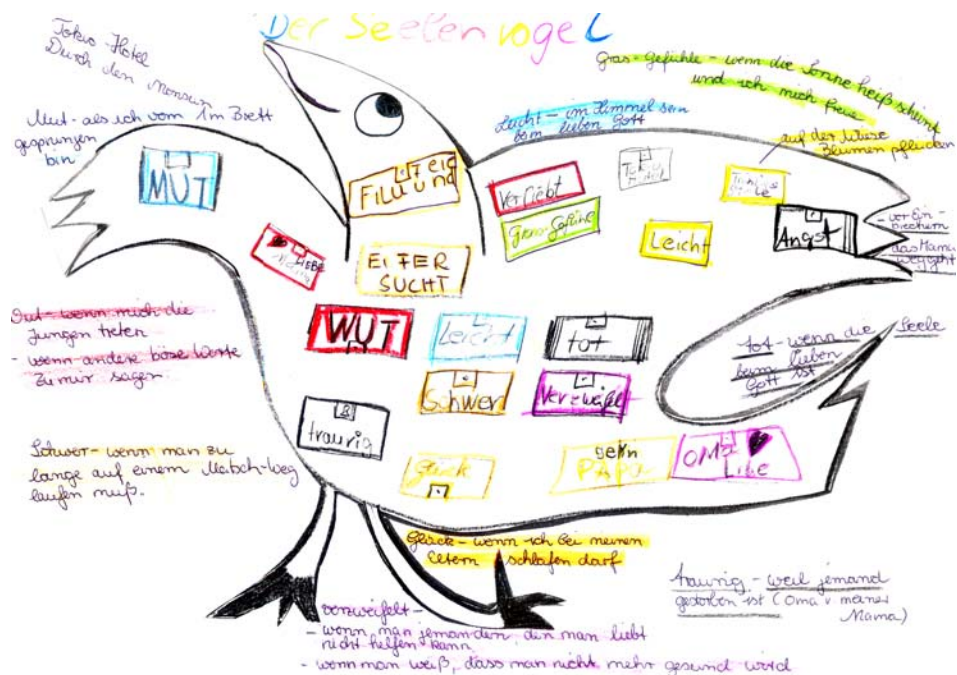 Der Seelenvogel
Tokio-Hotel
Durch den Monsun
Mut - als ich vom 1m Brett
gesprungen
bin
Gras-Gefühle - wenn die Sonne heiß scheint
und ich mich freue
Leicht - im Himmel sein
beim lieben Gott
auf der Wiese
Blumen pflücken
MUT
Verliebt
Gras-Gefühle
Leicht
Angst
- vor Ein-
brechern
- das Mama
weggeht
LIEBE
EIFER
SUCHT
WUT
Leicht
tot
Wut - wenn mich die
Jungen treten
- wenn andere böse Worte
zu mir sagen
tot - wenn die Seele
beim lieben
Gott ist
Schwer
Verzweifel
traurig
Glück
gern
PAPA
OMA
Liebe
Schwer - wenn man zu
lange auf einem Matsch-Weg
laufen muß.
Glück - wenn ich bei meinen
Eltern schlafen darf
traurig - weil jemand
gestorben ist (Oma v. meiner
Mama)
verzweifelt -
- wenn man jemanden, den man liebt
nicht helfen kann
- wenn man weiß, dass man nicht mehr gesund wird